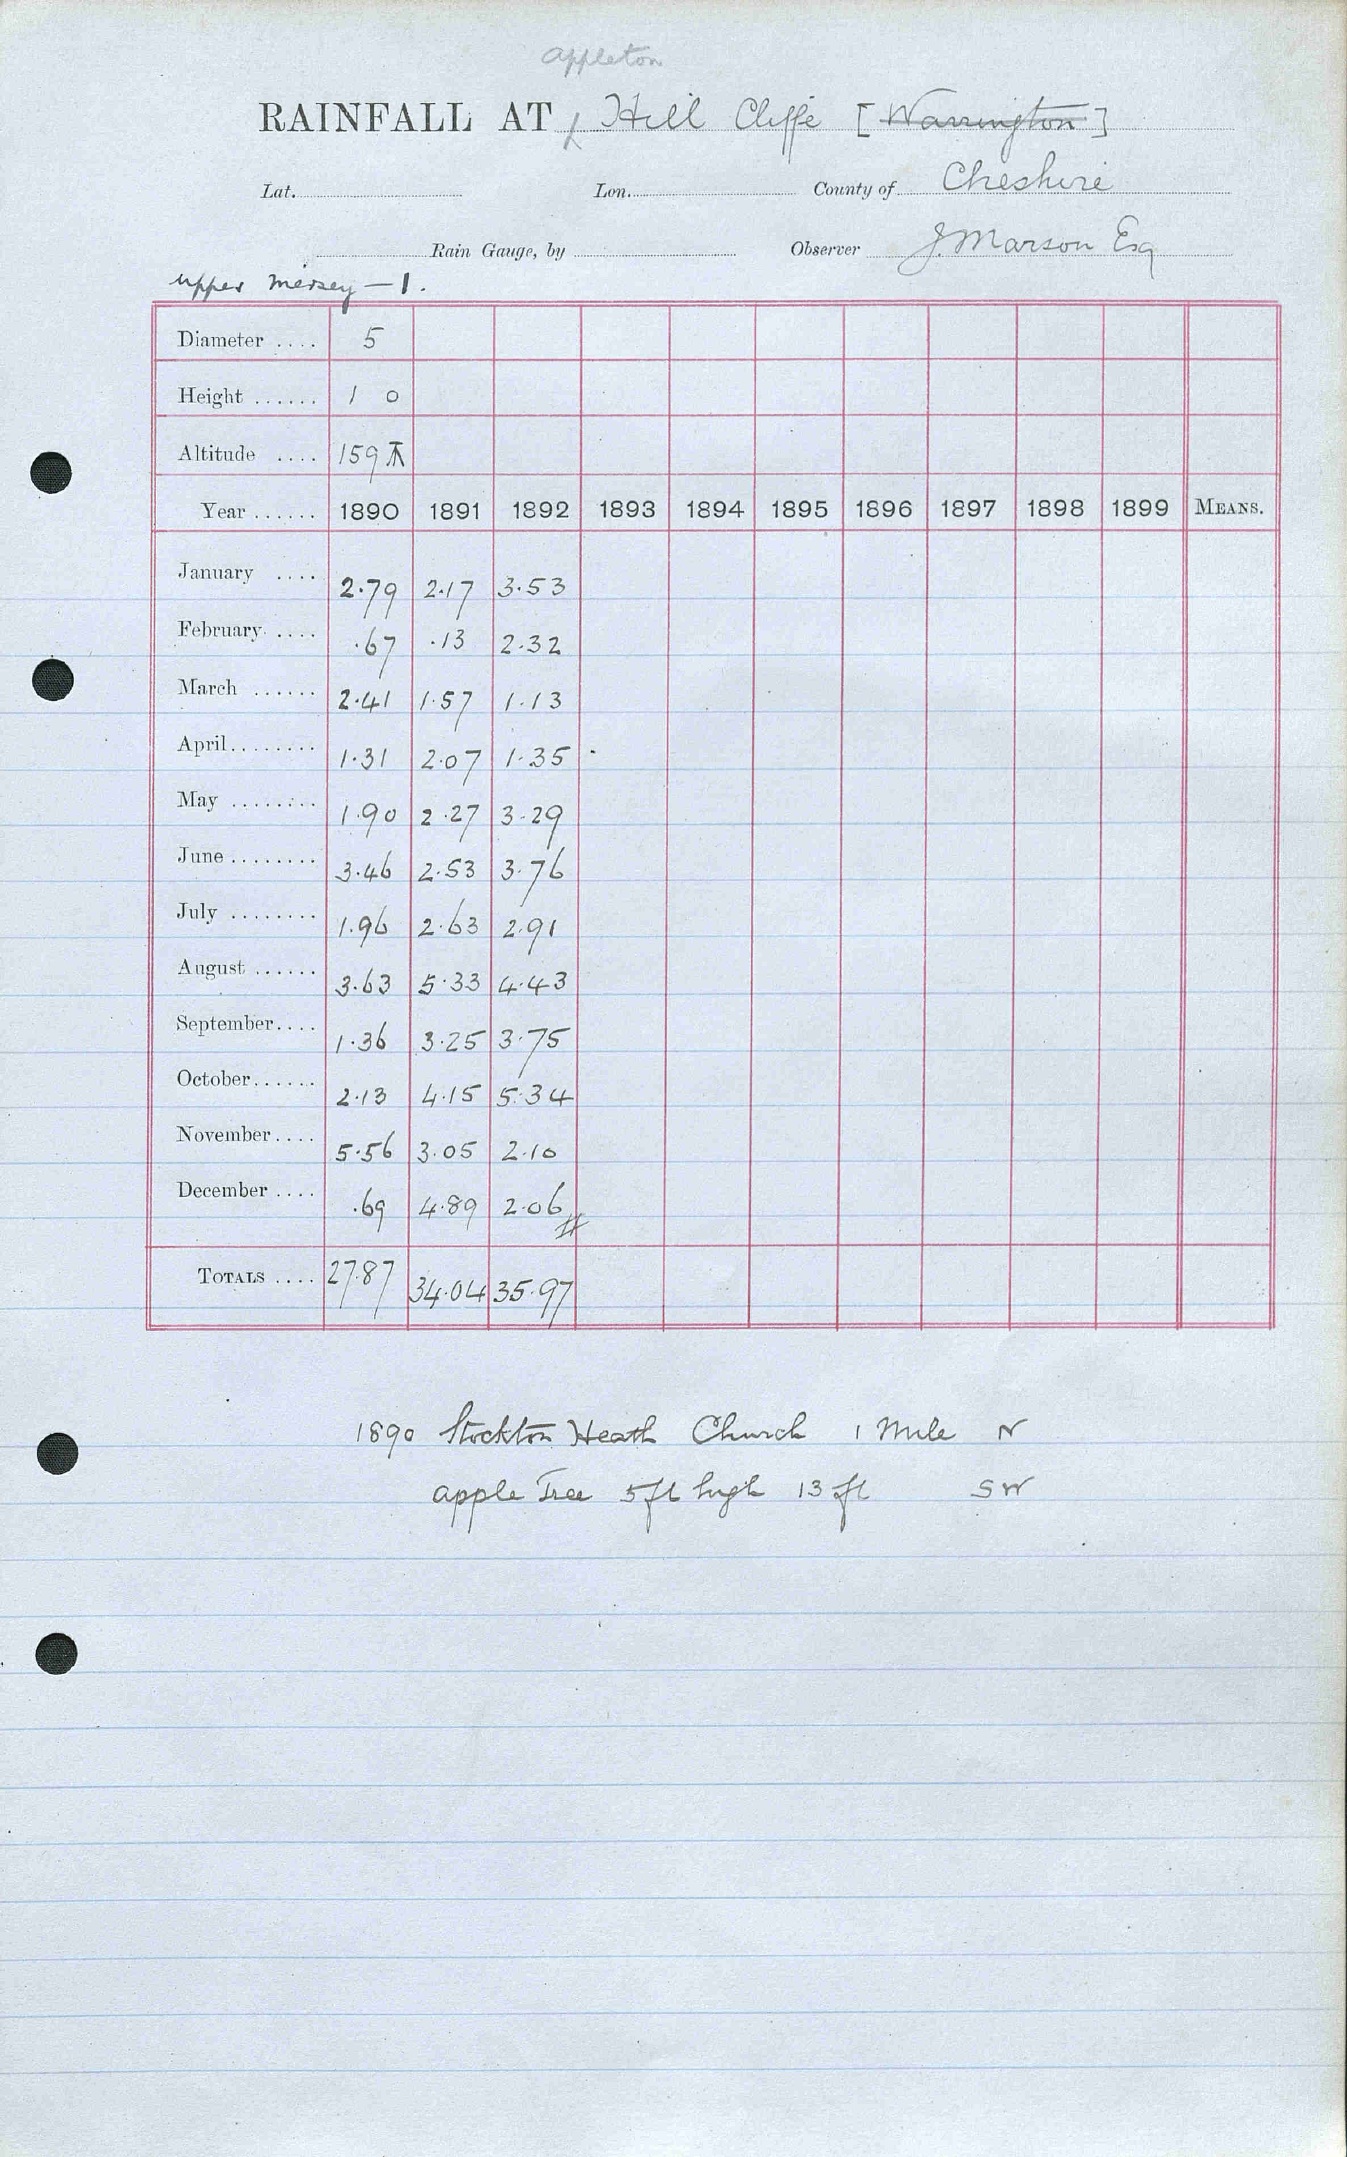 Appleton
RAINFALL AT Hill Cliffe [Warrington]
Lat. Lon. County of Cheshire
Rain Gauge, by Observer J. Marson Esq
Upper Mersey — 1.
Diameter .... 5
Height ...... 1 0
Altitude .... 159
Year ...... 1890 1891 1892 1893 1894 1895 1896 1897 1898 1899 MEANS.
January .... 2.79 2.17 3.53
February .... .67 .13 2.32
March ...... 2.41 1.57 1.13
April........ 1.31 2.07 1.35
May ........ 1.90 2.27 3.29
June ........ 3.46 2.53 3.76
July ........ 1.96 2.63 2.91
August ...... 3.63 5.33 4.43
September.... 1.36 3.25 3.75
October...... 2.13 4.15 5.34
November.... 5.56 3.05 2.10
December .... .69 4.89 2.06
TOTALS .... 27.87 34.04 35.97
1890 Stockton Heath Church 1 Mile N
apple Tree 5 ft high 13 ft SW